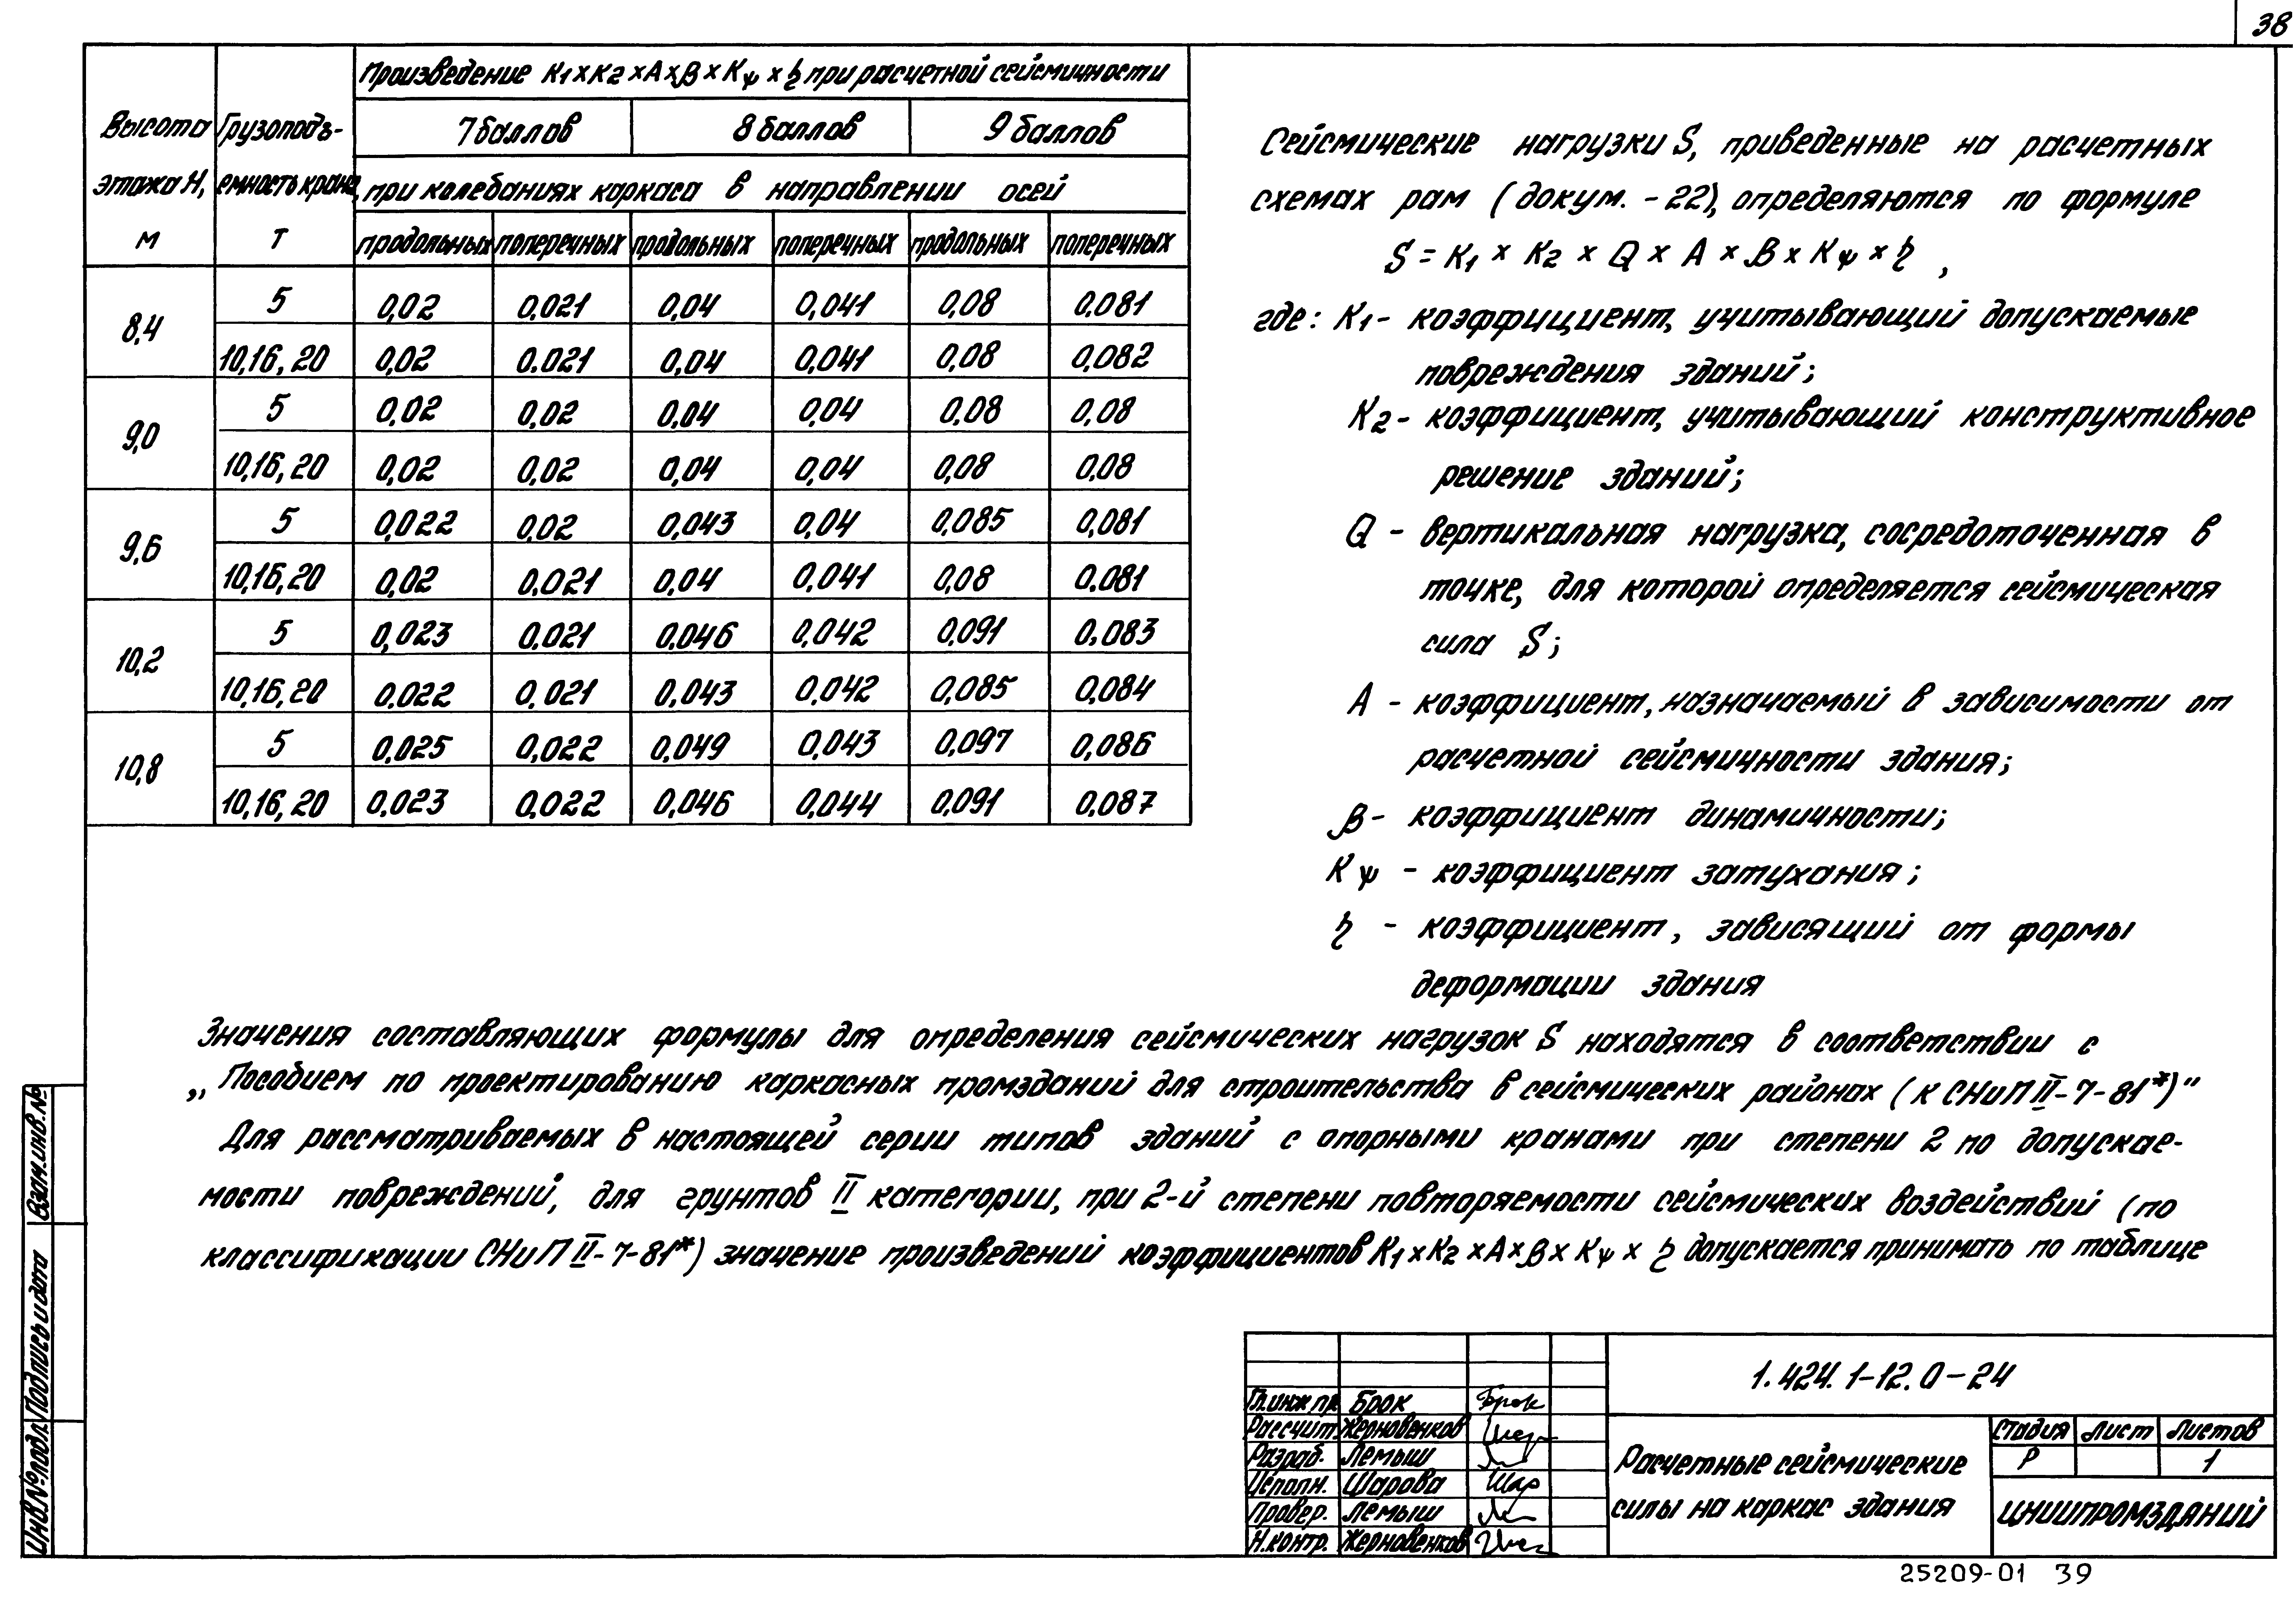 38
Произведение К1×К2×А×β×Кψ×η при расчетной сейсмичности
Высота этажа Н, м
Грузоподъ-емность крана, т
7 баллов 8 баллов 9 баллов
при колебаниях каркаса в направлении осей
продольных поперечных продольных поперечных продольных поперечных
8,4 5 0,02 0.021 0,04 0,041 0,08 0.081
10,16,20 0,02 0.021 0,04 0,041 0,08 0,082
9,0 5 0,02 0,02 0,04 0,04 0,08 0,08
10,16,20 0,02 0,02 0,04 0,04 0,08 0,08
9,6 5 0,022 0,02 0,043 0,04 0,085 0,081
10,16,20 0,02 0.021 0,04 0,041 0,08 0.081
10,2 5 0,023 0.021 0,046 0,042 0,091 0,083
10,16,20 0.022 0,021 0,043 0,042 0,085 0,084
10,8 5 0,025 0,022 0,049 0,043 0,097 0,086
10,16,20 0.023 0,022 0,046 0,044 0,091 0,087
Сейсмические нагрузки S, приведенные на расчетных
схемах рам (докум. -22), определяются по формуле
S = К1 × К2 × Q × А × β × Кψ × η ,
где: К1- коэффициент, учитывающий допускаемые
повреждения зданий;
К2- коэффициент, учитывающий конструктивное
решение зданий;
Q - вертикальная нагрузка, сосредоточенная в
точке, для которой определяется сейсмическая
сила S;
А - коэффициент, назначаемый в зависимости от
расчетной сейсмичности здания;
β- коэффициент динамичности;
Кψ - коэффициент затухания;
η - коэффициент, зависящий от формы
деформации здания
Значения составляющих формулы для определения сейсмических нагрузок S находятся в соответствии с
„Пособием по проектированию каркасных промзданий для строительства в сейсмических районах (к СНиП II-7-81*)"
Для рассматриваемых в настоящей серии типов зданий с опорными кранами при степени 2 по допускае-
мости повреждений, для грунтов II категории, при 2-й степени повторяемости сейсмических воздействий (по
классификации СНиП II-7-81*) значение произведений коэффициентов К1×К2×А×β×Кψ×η допускается принимать по таблице
Взам.инв.№
Подпись и дата
Инв№подл.
1.424.1-12.0-24
Гл.инж.пр. Брок Брок
Рассчит. Жерновенков
Разраб. Лемыш
Исполн. Шарова Шар
Провер. Лемыш
Н.контр. Жерновенков
Расчетные сейсмические
силы на каркас здания
Стадия Лист Листов
Р 1
ЦНИИПРОМЗДАНИЙ
25209-01 39